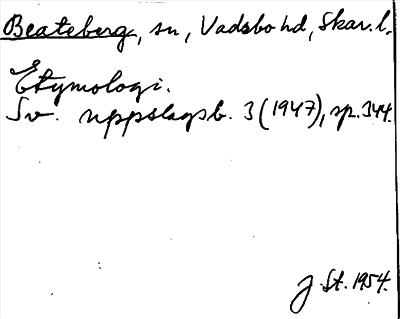 Beateberg, sn, Vadsbo hd, Skar. l.
Etymologi.
Sv. uppslagsb. 3 (1947), sp. 344.
J. St. 1954.